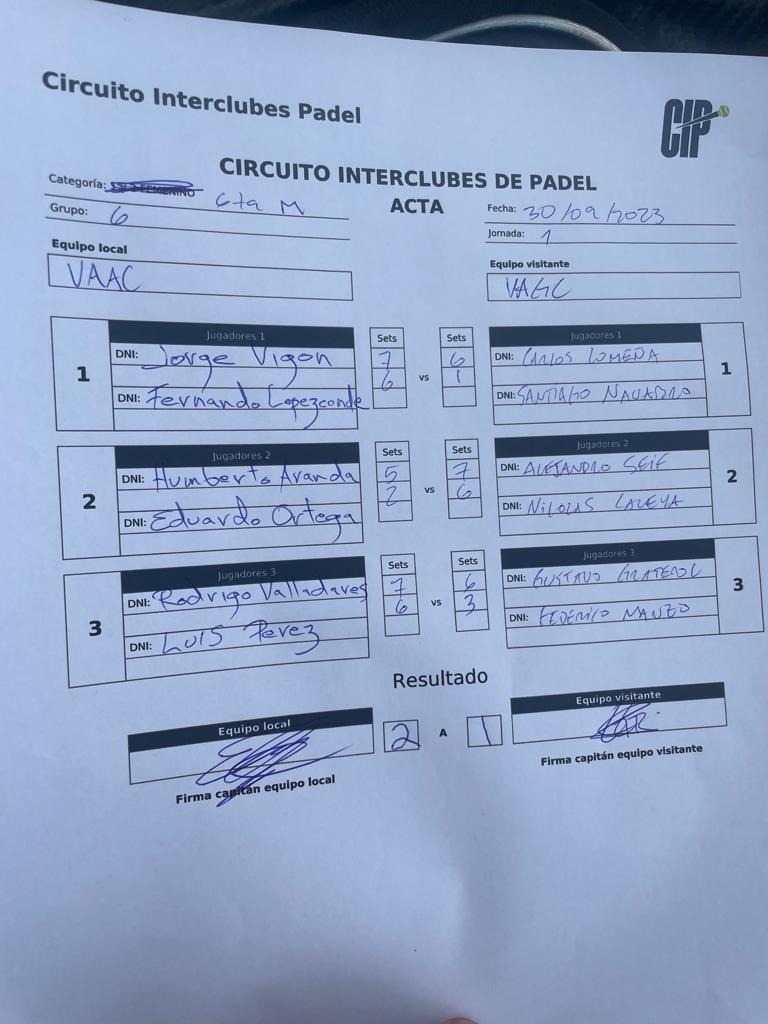 Circuito Interclubes Padel
CIP
CIRCUITO INTERCLUBES DE PADEL
ACTA
Categoría: 6ta M
Grupo: 6
Fecha: 30/09/2023
Jornada: 1
Equipo local
VAAC
Equipo visitante
VAGC
1
Jugadores 1
DNI: Jorge Vigon
DNI: Fernando Lopezconde
Sets
7
6
vs
Sets
6
1
Jugadores 1
DNI: CARLOS LOMEDA
DNI: SANTIAGO NAVARRO
1
2
Jugadores 2
DNI: Humberto Aranda
DNI: Eduardo Ortega
Sets
5
2
vs
Sets
7
6
Jugadores 2
DNI: ALEJANDRO SEIF
DNI: NICOLAS
2
3
Jugadores 3
DNI: Rodrigo Valladares
DNI: LUIS Perez
Sets
7
6
vs
Sets
6
3
Jugadores 3
DNI: GUSTAVO GRATEROL
DNI: FEDERICO MANZO
3
Resultado
Equipo local
2 A 1
Equipo visitante
Firma capitán equipo local
Firma capitán equipo visitante